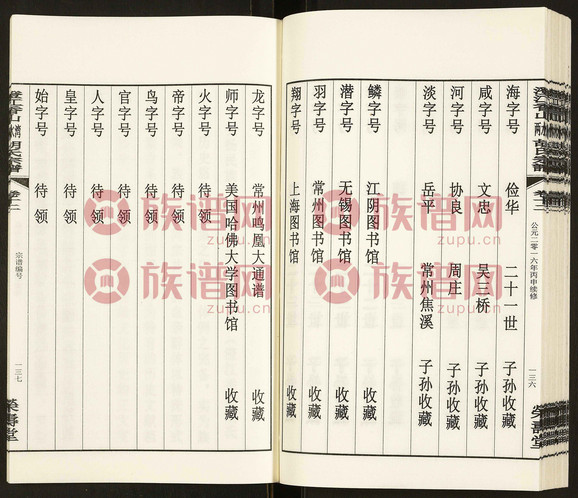 海字号 俭华 二十一世 子孙收藏
咸字号 文忠 吴三桥 子孙收藏
河字号 协良 周庄 子孙收藏
淡字号 岳平 常州焦溪 子孙收藏
鳞字号 江阴图书馆 收藏
潜字号 无锡图书馆 收藏
羽字号 常州图书馆 收藏
翔字号 上海图书馆 收藏
公元二零一六年丙申续修
一三六
荣寿堂
龙字号 常州鸣凰大通谱 收藏
师字号 美国哈佛大学图书馆 收藏
火字号 待领
帝字号 待领
鸟字号 待领
官字号 待领
人字号 待领
皇字号 待领
始字号 待领
卷十二
宗谱编号
一三七
荣寿堂
族谱网
zupu.cn
族谱网
zupu.cn
族谱网
zupu.cn
族谱网
zupu.cn